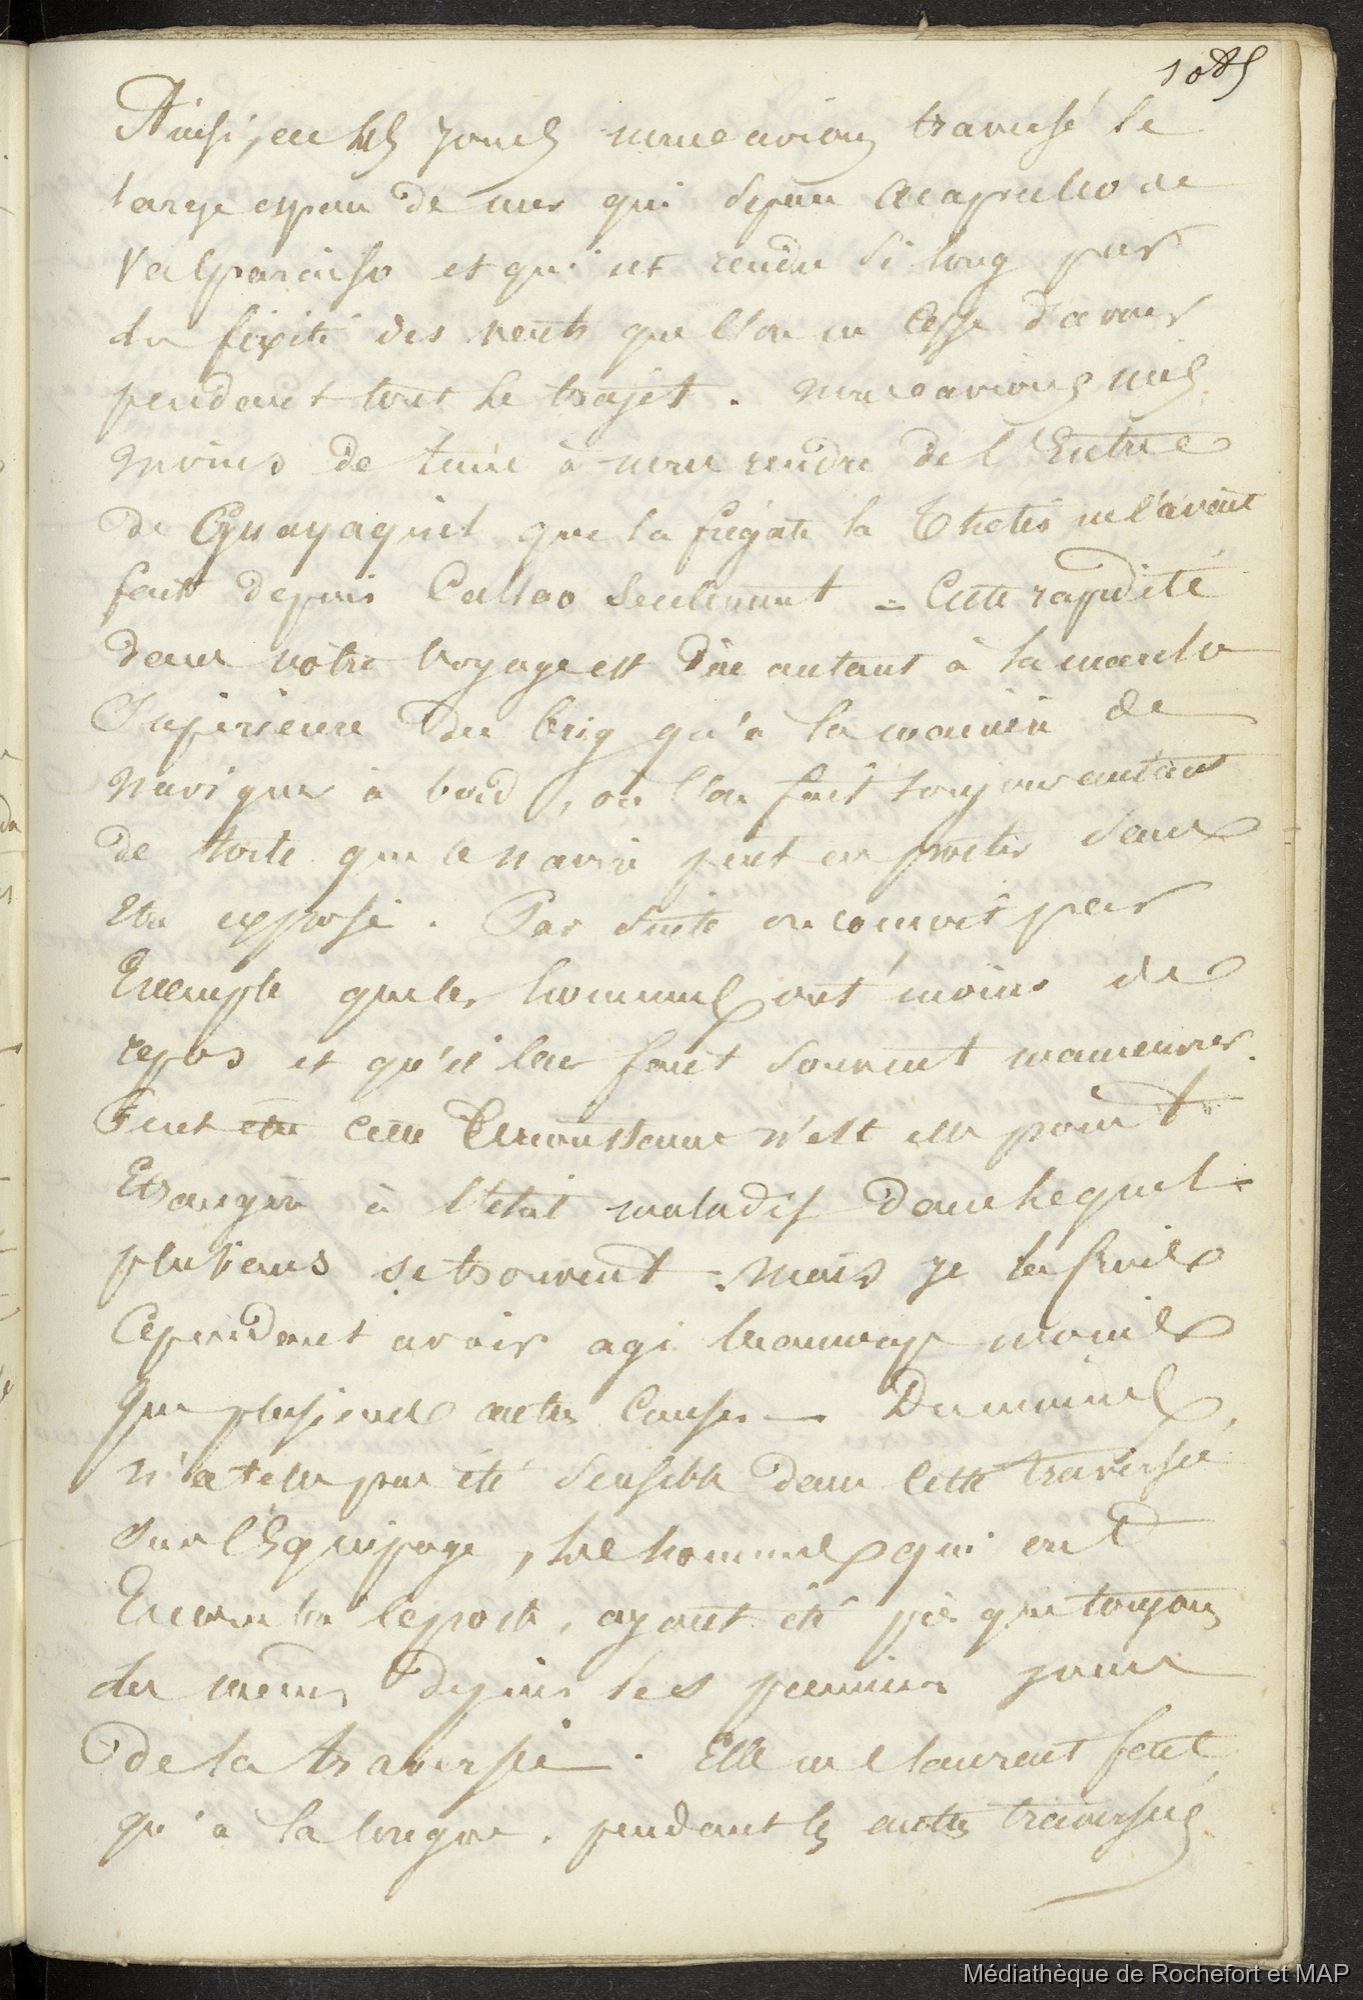 Ainsi, en jours nous avions traversé le
large espace de mer qui sépare Acapulco de
Valparaiso et qui est rendu si long par
la fixité des vents que l'on ne cesse d'avoir
pendant tout le trajet. nous avions mis
moins de tems à nous rendre de l'Entrée
de Guayaquil que la frégate la Thetis ne l'avait
fait depuis Callao seulement = Cette rapidité
dans nôtre voyage est dûe autant à la marche
Supérieure du brig qu'à la manière de
naviguer à bord, où l'on fait toujours autant
de toile que le navire peut en porter sans
Etre exposé. Par suite on conçoit par
Exemple que les hommes ont moins de
repos et qu'il leur faut souvent manœuvrer.
Peut être cette Circonstance n'est elle point
Etrangère à l'état maladif dans lequel
plusieurs se trouvent. Mais je la crois
Cependant avoir agi beaucoup moins
que plusieurs autres causes — Du moins
n'a telle pas été sensible dans cette traversée
Sur l'Equipage, les hommes qui ont
Encombré le poste, ayant été presque toujours
les mêmes depuis les premiers jours
de la traversée. Elle ne l'auroit fait
qu'à la longue. pendant les autres traversées